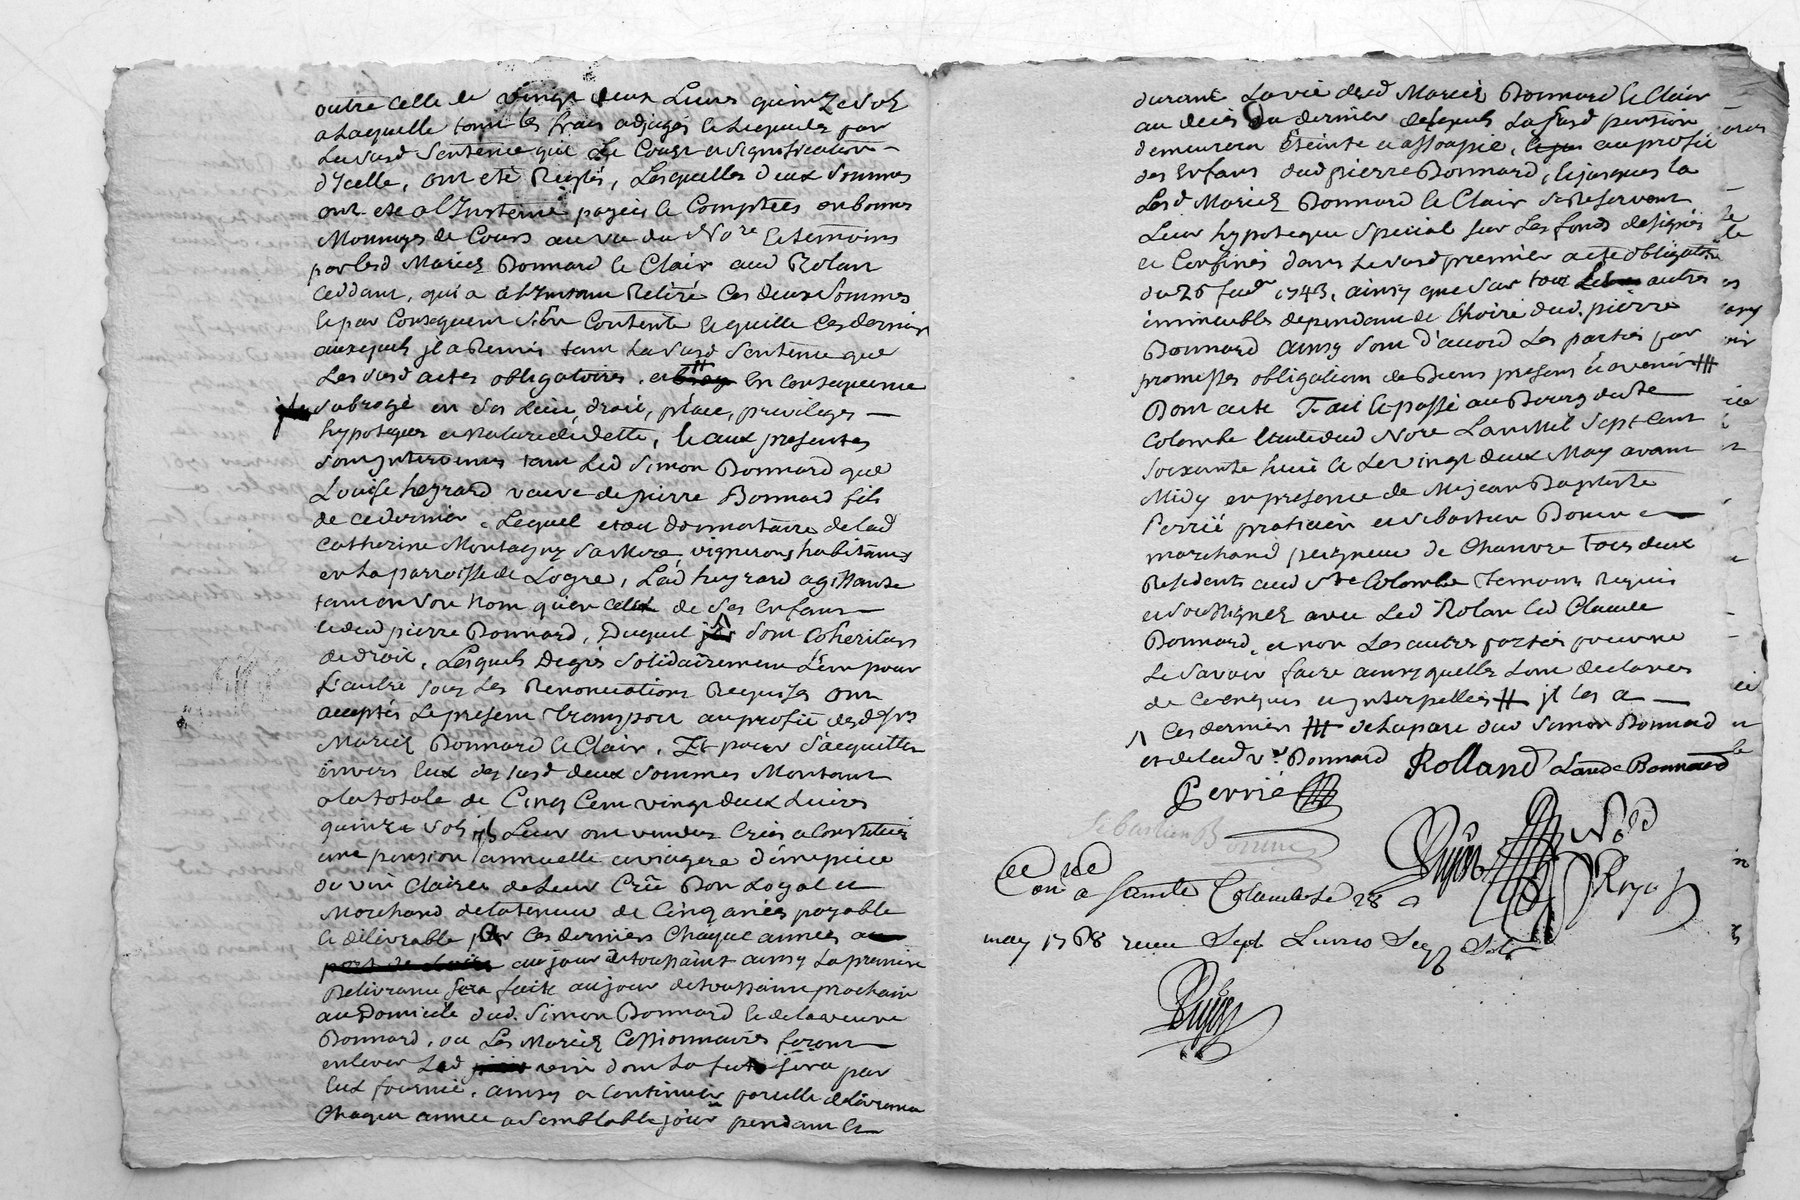 outre celle de vingt deux Livres quinze sols
a laquelle tous les frais adjugés et liquidés par
La susd Sentence que Le Coust et signification
d'Icelle, ont eté Reglés, Lesquelles deux sommes
ont eté a l'Instant payées et Comptées en bonnes
Monnoyes de Cours au vu du Nore et temoins
par lesd Mariez Bonnard et Clair aud Rolan
Ceddant, qui a a l'Instant Retiré Ces deux sommes
et par Consequent s'En Contente et quitte Ces derniers
auxquels jl a Remis tant La susd Sentence que
Les susd actes obligatoires, et # En consequence
subrogé en son Lieu, droit, place, privileges
hypoteques et nature de dette, et aux presentes
sont Intervenus tant Led Simon Bonnard que
Louise heyrard veuve de pierre Bonnard fils
de ce dernier, Lequel etoit donnataire de lad
Catherine Montagny sa Mere, vignerons habitans
en La parroisse de Logre, Lad heyrard agissante
tant en son Nom qu'en celui de ses Enfans
et dud pierre Bonnard, Duquel jls sont Coheritiers
de droit, Lesquels Degrés solidairement L'un pour
L'autre sous Les Renonciations Requises ont
acceptés Le present Transport au profit desd
Mariez Bonnard et Clair, Et pour s'acquitter
envers Eux des susd deux sommes Montant
a la totale de Cinq Cent vingt deux Livres
quinze sols jls Leur ont vendu Créés a Constitué
une pension annuelle et viagere d'une piece
de vin Clairet de Leur Crû Bon Loyal et
Marchand de la teneur de Cinq anées payable
et délivrable par Ces derniers Chaque années au
port de Loire au jour de toussaint ainsy La premiere
Délivrance sera faite au jour de toussaint prochain
au Domicile dud. Simon Bonnard et de la veuve
Bonnard, ou Les Mariez Cessionnaires feront
enlever Led vin dont La futs sera par
Eux fournie, ainsy a Continuer pareille délivrance
Chaque année a semblable jour pendant et
durant La vie desd Mariez Bonnard et Clair
au decés du dernier desquels La susd pension
demeurera Eteinte et assoupie, au profit
des Enfans dud pierre Bonnard, et jusques la
Lesd Mariez Bonnard et Clair se Reservent
Leur hypoteque special sur Les fonds designés
et Confinés dans Le susd premier acte obligatoire
du 26 1743, ainsy que sur tous Les autres
immeubles dependant de L'hoirie dud. pierre
Bonnard ainsy sont d'accord Les parties par
promesses obligations de Biens presens et avenir #
Dont acte Fait et passé au Bourg de Ste
Colombe Etude dud Nore L'an Mil Sept Cent
soixante huit et Le vingt deux May avant
Midy en presence de Me jean Baptiste
Perrié praticien et sebastien Bonin
marchand peigneur de Chanvre Tous deux
Residents aud Ste Colombe Temoins Requis
et soussignez avec Led Rolan Led Claude
Bonnard, et non Les autres parties pour ne
Le savoir faire ainsy quelles l'ont declarées
de ce enquis et Interpellées # jl les a
Ces derniers # de la part dud Simon Bonnard
et de lad ve Bonnard Rolland Claude Bonnard
Perrié
Sebastien Bonin
Pupier Nore Royal
Conlé a sainte Colombe Le 28
may 1768 reçu Sept Livres Sols
Pupier